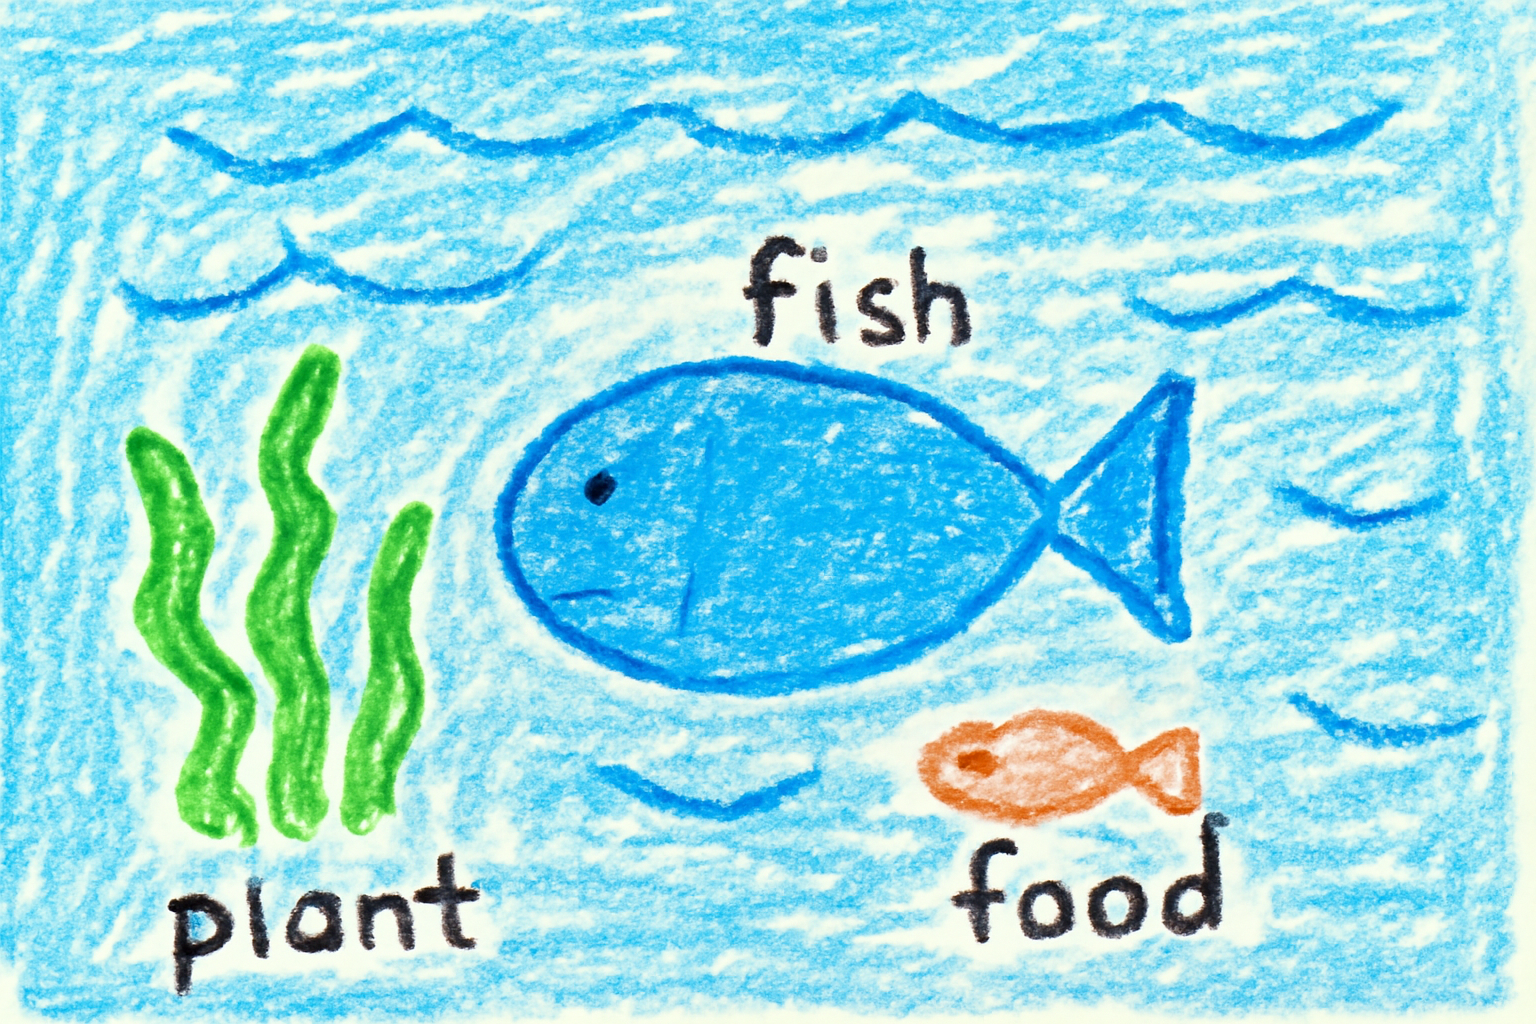 fish
plant
food